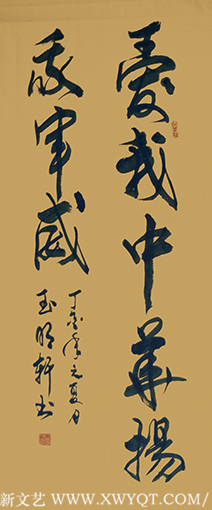 愛我中華揚
我军威
丁亥年之夏月
玉明轩书
新文艺 WWW.XWYQT.COM/